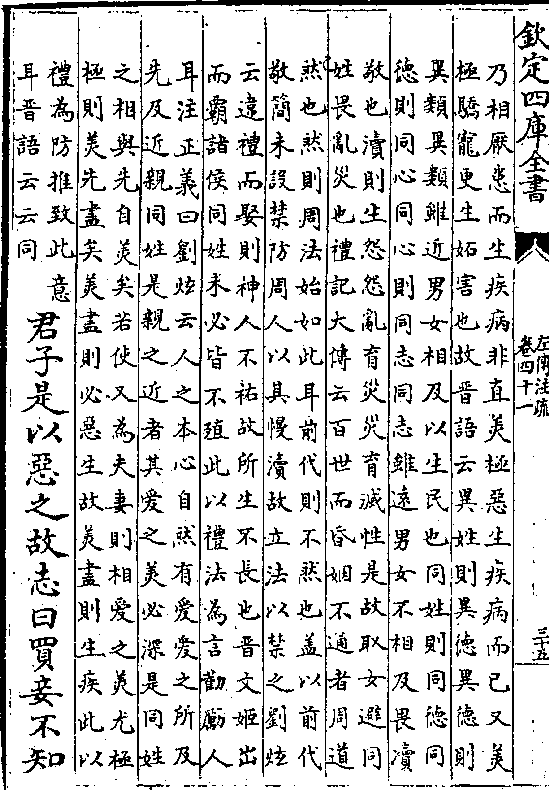 欽定四庫全書
左傳注疏
卷四十一
三十五
乃相厭患而生疾病非直美極惡生疾病而已又美
極驕寵更生妬害也故晉語云異姓則異德異德則
異類異類雖近男女相及以生民也同姓則同德同
德則同心同心則同志同志雖遠男女不相及畏瀆
敬也瀆則生怨怨亂育災災育滅性是故取女避同
姓畏亂災也禮記大傳云百世而昏姻不通者周道
然也然則周法始如此耳前代則不然也盖以前代
敬簡未設禁防周人以其慢瀆故立法以禁之劉炫
云違禮而娶則神人不祐故所生不長也晉文姬出
而霸諸侯同姓未必皆不殖此以禮法為言勸勵人
耳注正義曰劉炫云人之本心自然有愛愛之所及
先及近親同姓是親之近者其愛之美必深是同姓
之相與先自美矣若使又為夫妻則相愛之美尤極
極則美先盡矣美盡則必惡生故美盡則生疾此以
禮為防推致此意
耳晉語云云同
君子是以惡之故志曰買妾不知